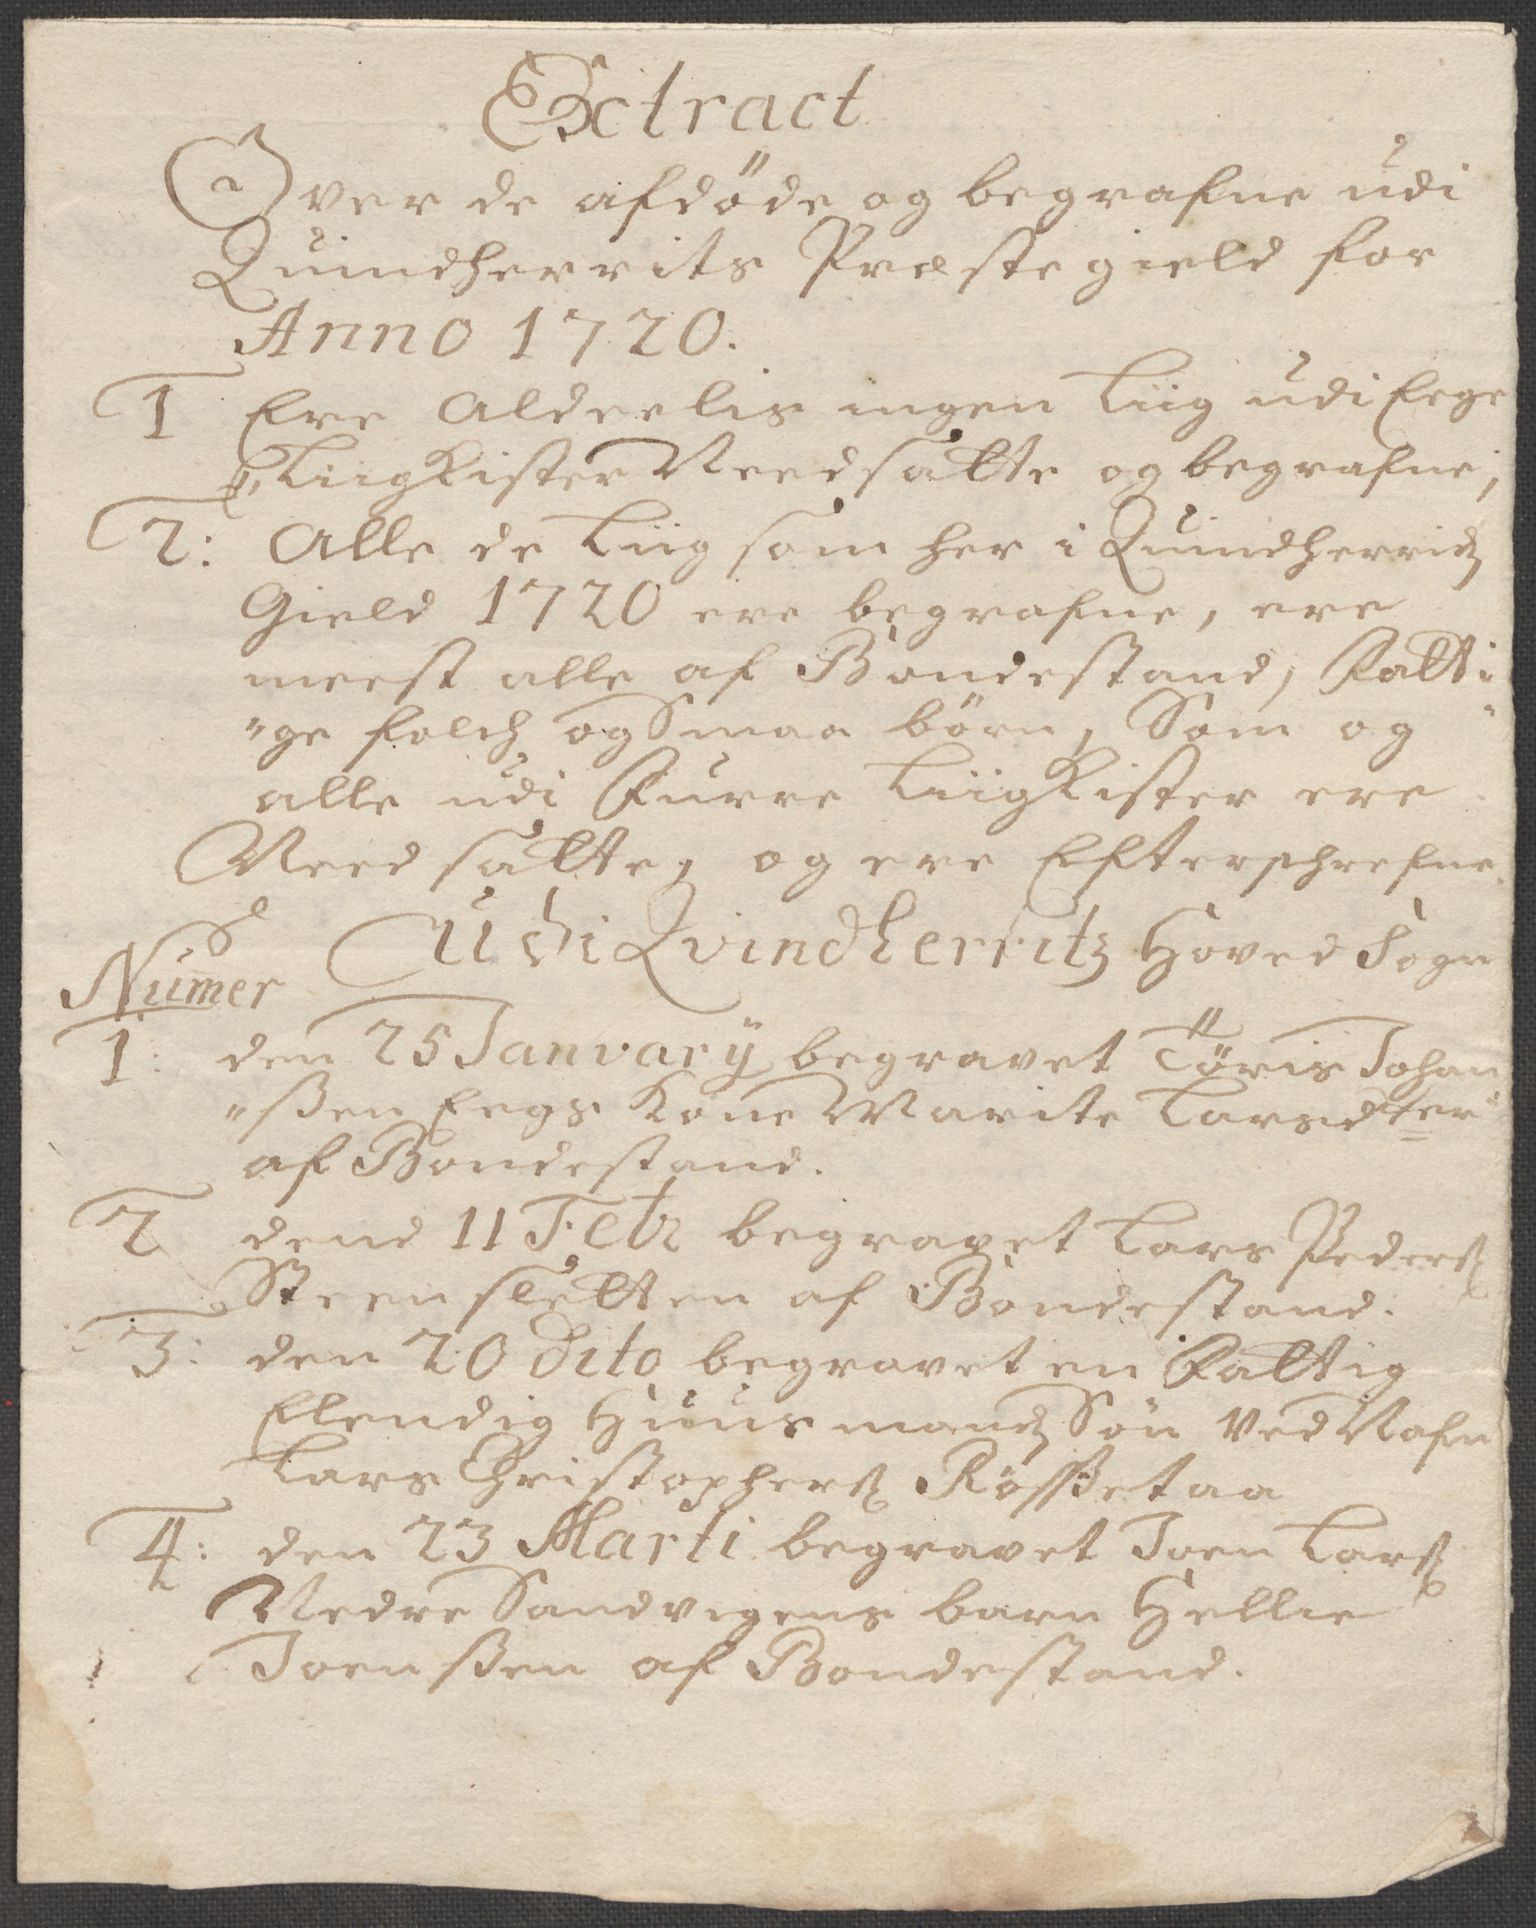 Extract
Over de afdöde og begrafne udi
Quindherrits Præstegield for
Anno 1720.
1 Ere Alderelis ingen Liig udi Eege
LiigKister Needsatte og begrafne,
2: Alle de Liig som her i Quindherridz
Gield 1720 ere begrafne, ere
meest alle af Bondestand, Fatti
"ge folch og Smaa börn, Som og
alle udi Furre LiigKister ere
Needsatte, og ere Efterschrefne.
Udi Qvindherritz Hoved Sogn
Numer
1: den 25 Janvarij begravet Töris Johan
"ßen Eegs Kone Marite Larsdter
af Bondestand.
2 dend 11 Febr begravet Lars Pederß
Steensletten af Bondestand.
3: den 20 Dito begravet en Fattig
Elendig Huusmandz Sön Ved Nafn
Lars Christopherß Rößetaa
4: den 23 Marti begravet Joen Larß
Nedre Sandvigens barn Hellie
Joenßen af Bondestand.